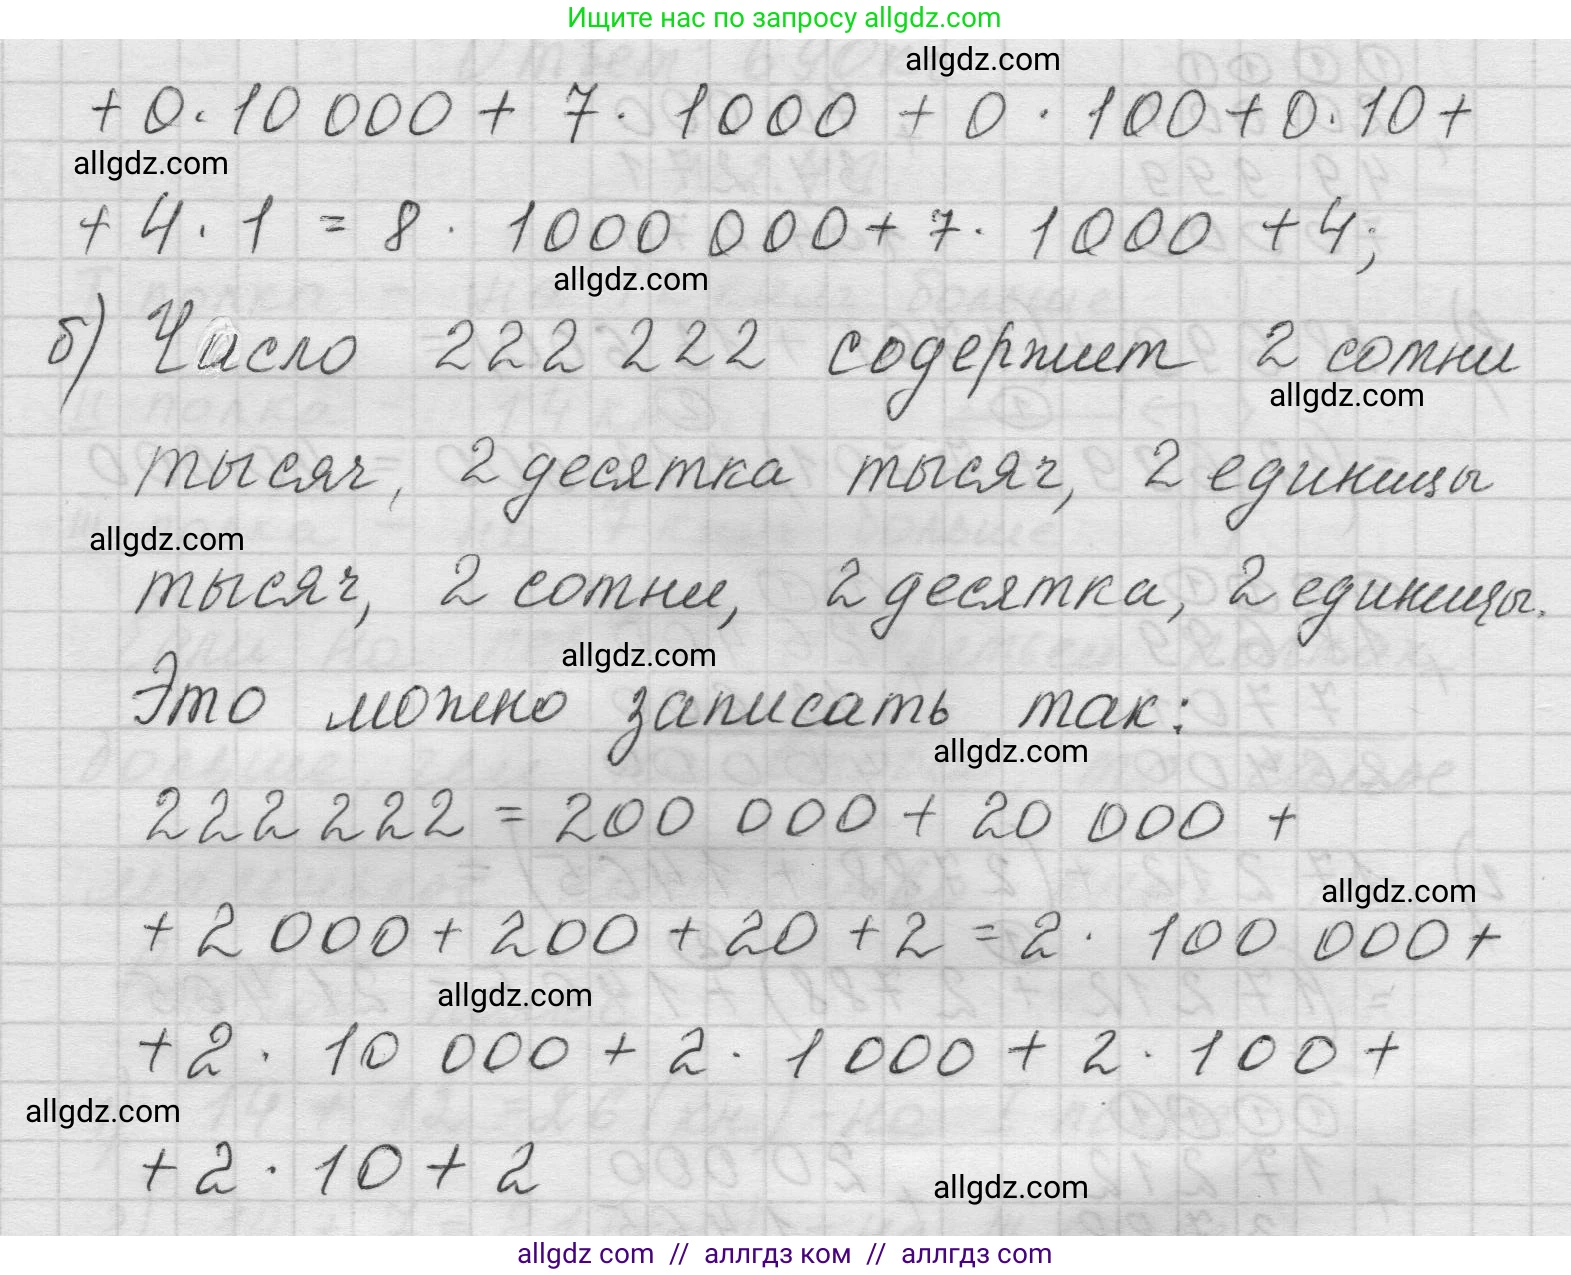 Ищите нас по запросу allgdz.com
allgdz.com
+ 0 · 10 000 + 7 · 1000 + 0 · 100 + 0 · 10 +
allgdz.com
+ 4 · 1 = 8 · 1000 000 + 7 · 1000 + 4;
allgdz.com
б) Число 222 222 содержит 2 сотни
allgdz.com
тысяч, 2 десятка тысяч, 2 единицы
allgdz.com
тысяч, 2 сотни, 2 десятка, 2 единицы.
allgdz.com
Это можно записать так:
allgdz.com
222 222 = 200 000 + 20 000 +
allgdz.com
+ 2 000 + 200 + 20 + 2 = 2 · 100 000 +
allgdz.com
+ 2 · 10 000 + 2 · 1 000 + 2 · 100 +
allgdz.com
+ 2 · 10 + 2
allgdz.com
allgdz com // аллгдз ком // аллгдз com